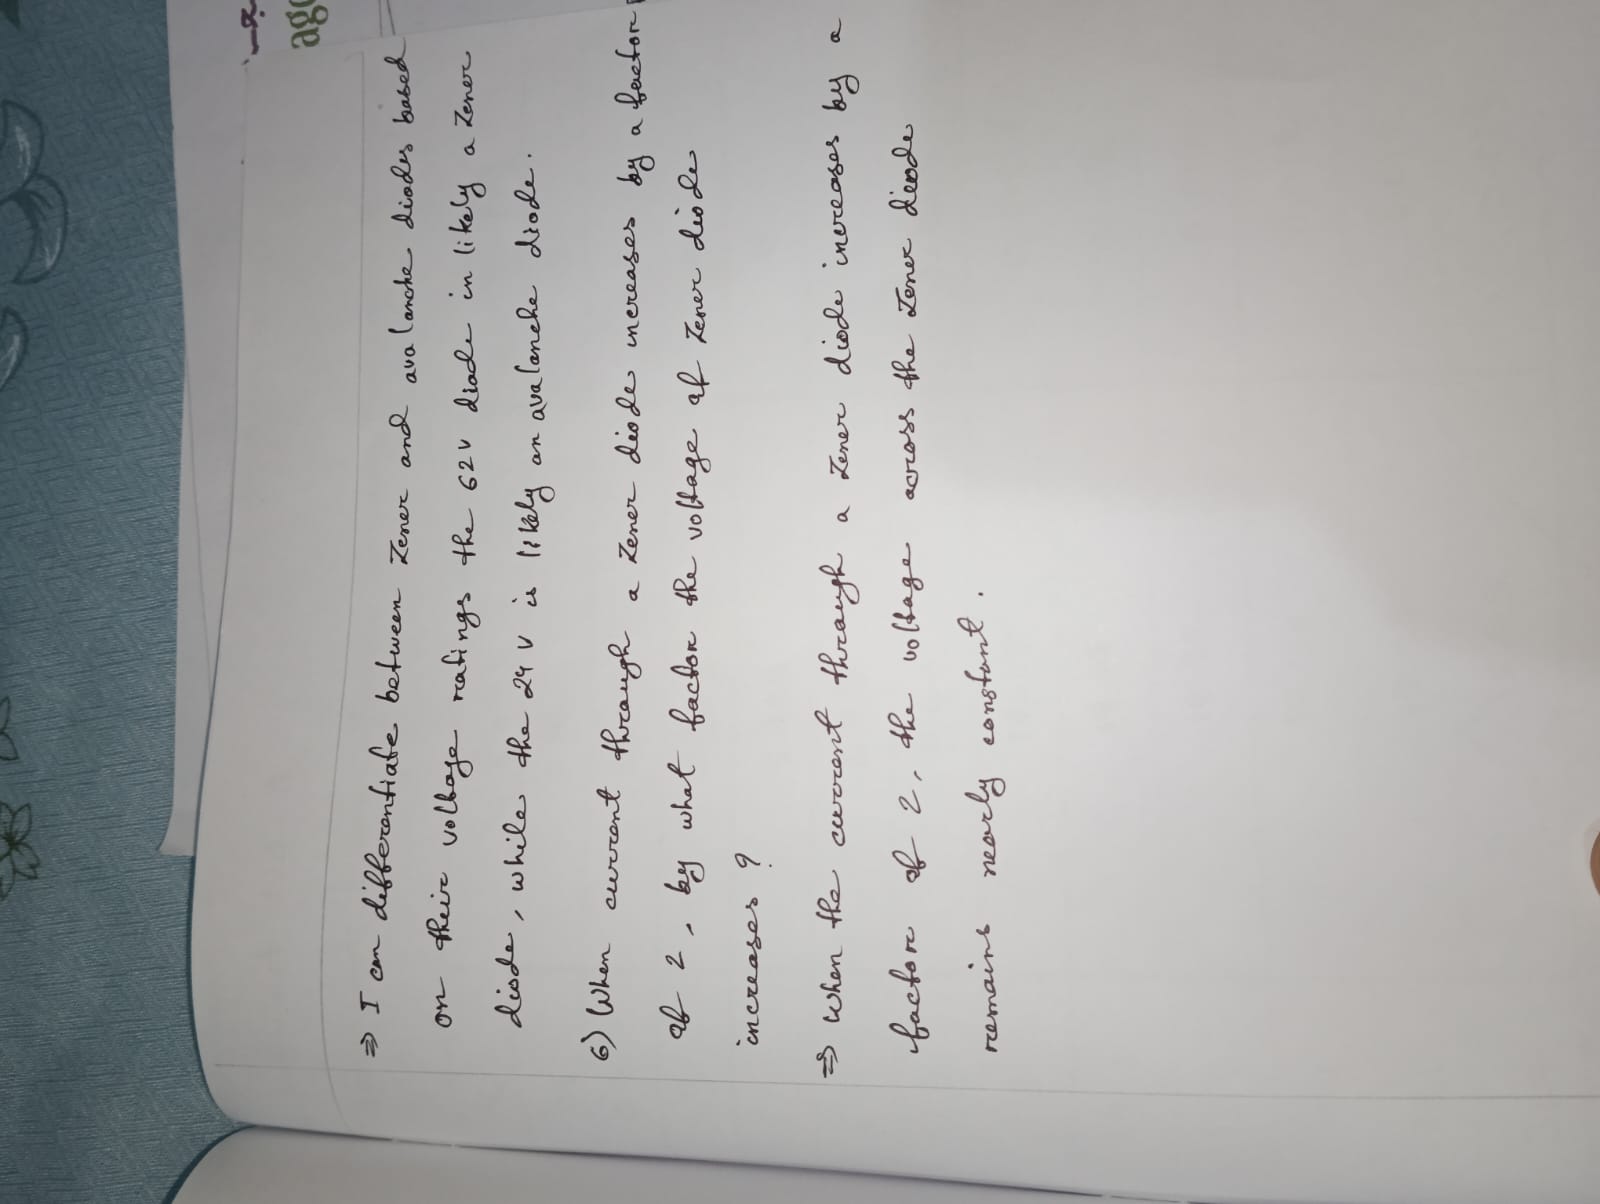 ago
⇒ I can differentiate between Zener and avalanche diodes based
on their voltage ratings the 62v diode in likely a Zener
diode, while the 24 v is likely an avalanche diode.
6) When current through a Zener diode increases by a factor
of 2, by what factor the voltage of Zener diode
increases ?
⇒ When the current through a Zener diode increases by a
factor of 2, the voltage across the Zener diode
remains nearly constant.